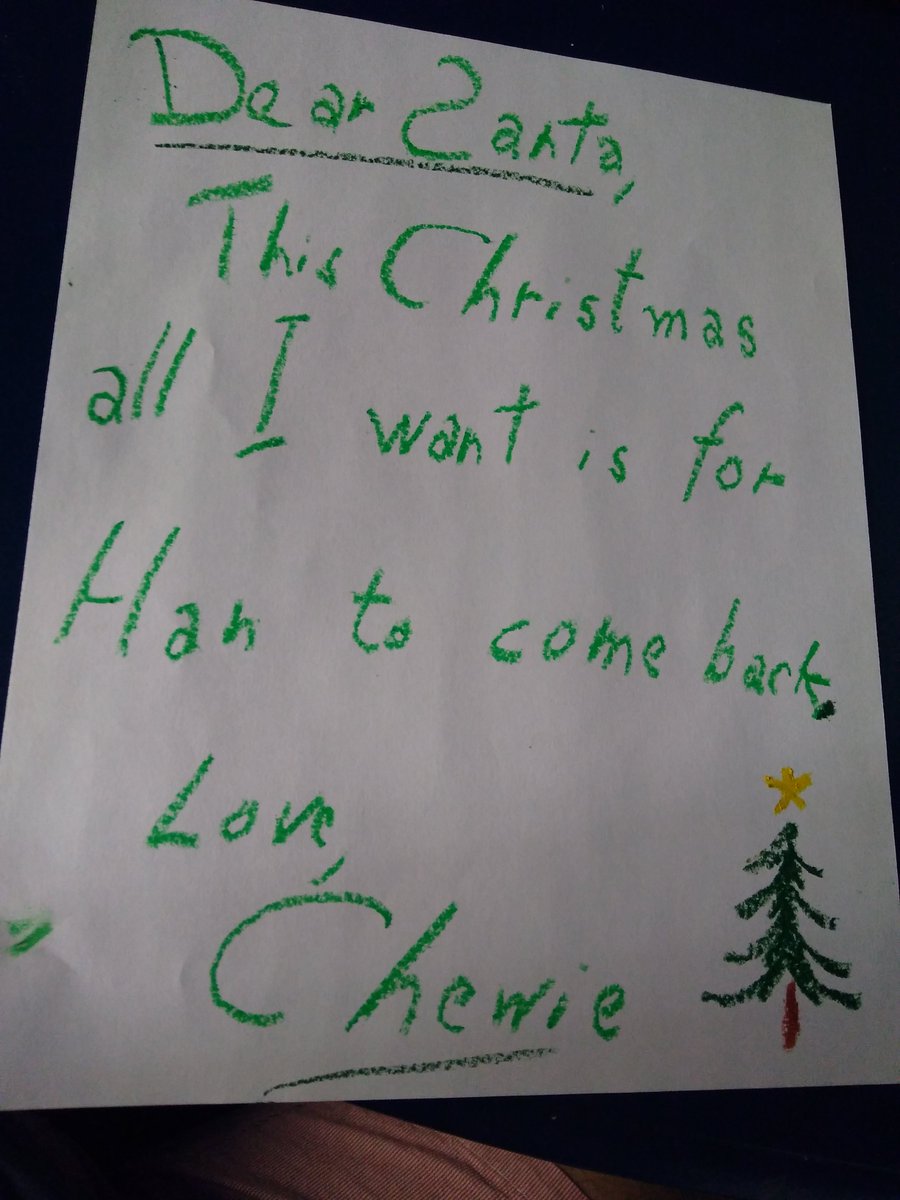 Dear Santa,
This Christmas
all I want is for
Han to come back.
Love,
Chewie